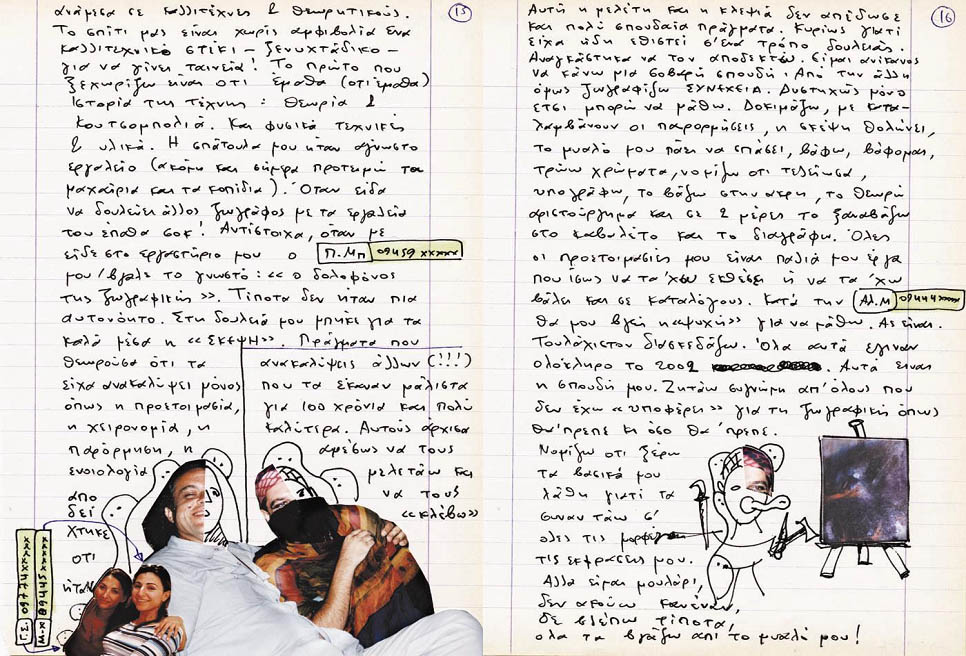 15
ανάμεσα σε καλλιτέχνες & θεωρητικούς.
Το σπίτι μας είναι χωρίς αμφιβολία ένα
καλλιτεχνικό στέκι – ξενυχτάδικο –
για να γίνει ταινεία! Το πρώτο που
ξεχωρίζω είναι οτι έμαθα (οτι έμαθα)
Ιστορία της τέχνης : Θεωρία &
Κουτσομπολιά. Και φυσικά τεχνικές
& υλικά. Η σπάτουλα μου ήταν άγνωστο
εργαλείο (ακόμη και σήμερα προτειμώ τα
μαχαίρια και τα κοπίδια). Όταν είδα
να δουλεύει άλλος ζωγράφος με τα εργαλεία
του έπαθα σοκ! Αντίστοιχα, όταν με
είδε στο εργαστήριο μου ο Π. Μπ 09459 xxxxx
μου 'βγαλε το γνωστό : «ο δολοφόνος
της ζωγραφικής». Τίποτα δεν ήταν πια
αυτονόητο. Στη δουλειά μου μπήκε για τα
καλά μέσα η «ΣΚΕΨΗ». Πράγματα που
θεωρούσα ότι τα ανακαλύψεις άλλων (!!!)
είχα ανακαλύψει μόνος που τα έκαναν μάλιστα
όπως η προετοιμασία, για 100 χρόνια και πολύ
η χειρονομία, η καλύτερα. Αυτούς άρχισα
παρόρμηση, η αμέσως να τους
ενοιολογία μελετάω και
απο να τους
δεί «κλέβω»
χτηκε
οτι
ήταν
16
Αυτή η μελέτη και η κλεψιά δεν απέδωσε
και πολύ σπουδαία πράγματα. Κυρίως γιατί
είχα ήδη εθιστεί σ' ένα τρόπο δουλειάς.
Αναγκάστηκα να τον αποδεκτώ. Είμαι ανίκανος
να κάνω μια σοβαρή σπουδή. Από την άλλη
όμως ζωγραφίζω ΣΥΝΕΧΕΙΑ. Δυστηχώς μόνο
έτσι μπορώ να μάθω. Δοκιμάζω, με κατα-
λαμβάνουν οι παρορμήσεις, η σκέψη θολώνει,
το μυαλό μου πάει να σπάσει, βάφω, βάφομαι,
τρώω χρώματα, νομίζω οτι τελείωσα,
υπογράφω, το βάζω στην άκρη, το θεωρώ
αριστούργημα και σε 2 μέρες το ξαναβάζω
στο καβαλέτο και το διαγράφω. Όλες
οι προετοιμασίες μου είναι παλιά μου έργα
που ίσως να τα 'χω εκθέσει ή να τα 'χω
βάλει και σε καταλόγους. Κατά την Αλ. Μ 09444 xxxxx
θα μου βγεί η «ψυχή» για να μάθω. Ας είναι.
Τουλάχιστον διασκεδάζω. Όλα αυτά έγιναν
ολόκληρο το 2002 Αυτά είναι
η σπουδή μου. Ζητάω συγνώμη απ' όλους που
δεν έχω «υποφέρει» για τη ζωγραφική όπως
θα 'πρεπε κι όσο θα 'πρεπε.
Νομίζω οτι ξέρω
τα βασικά μου
λάθη γιατί τα
συναντάω σ'
όλες τις μορφές
τις εκφράσεις μου.
Αλλά είμαι μουλάρι,
δεν ακούω κανέναν,
δε βλέπω τίποτα,
όλα τα βγάζω απ' το μυαλό μου!